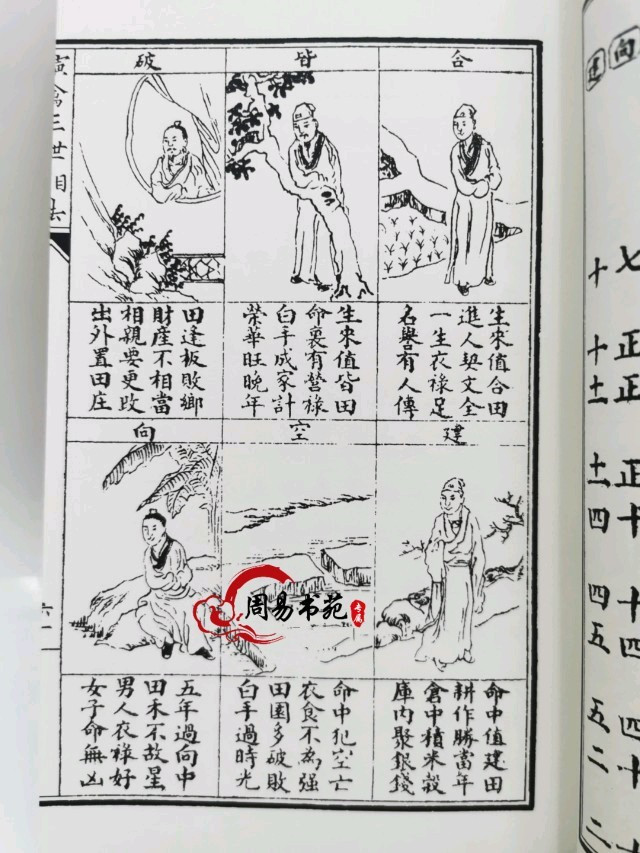 合
生來值合田
進人契文全
一生衣祿足
名譽有人傳
皆
生來值皆田
命裏有營祿
白手成家計
榮華旺晚年
破
田逢板敗鄉
財產不相當
相親要更改
出外置田庄
建
命中值建田
耕作勝當年
倉中積米穀
庫內聚銀錢
空
命中犯空亡
衣食不為强
田園多破敗
白手過時光
向
五年過向中
田禾不故星
男人衣祿好
女子命無凶
禽三世相法
六一
周易书苑
专属
向
建
七
正
正
正
十
十
四
四
十
十
十
十土
土
四
四
五
五
二
二